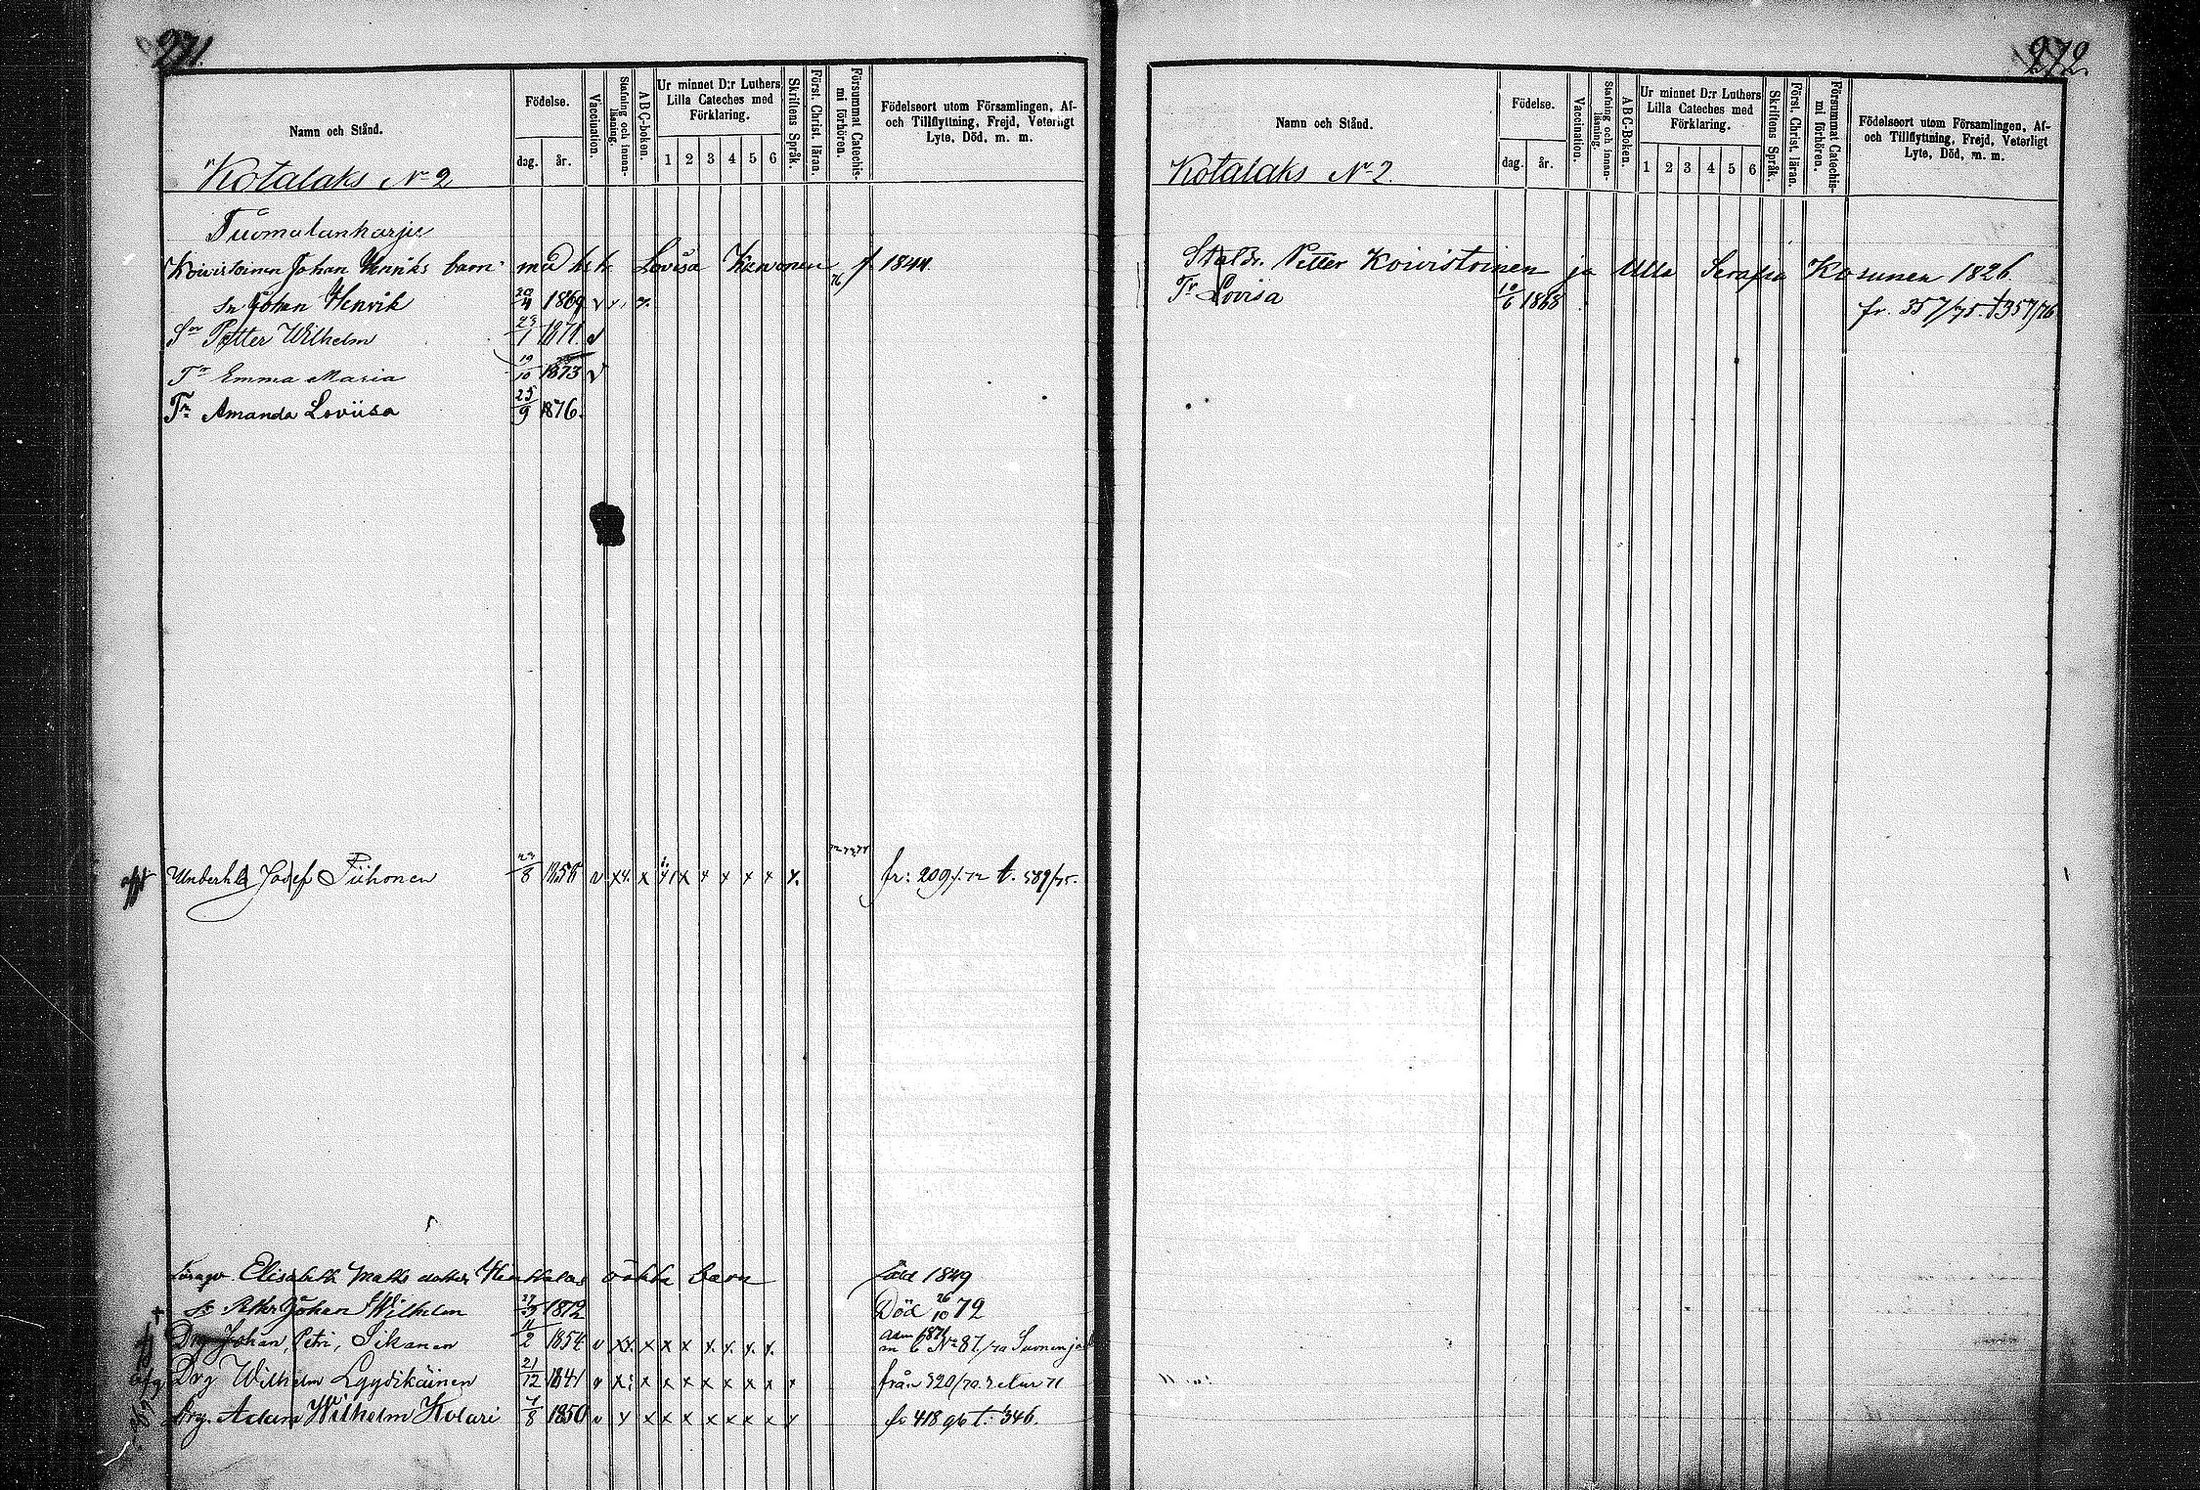 271.
Namn och Stånd.
Födelse.
dag. år.
Vaccination.
Stafning och innan-läsning.
A B C-boken.
Ur minnet D:r Luthers Lilla Cateches med Förklaring.
1 2 3 4 5 6
Skriftens Språk.
Först. Christ. läran.
Försummat Catechis-mi förhören.
Födelseort utom Församlingen, Af- och Tillflyttning, Frejd, Veterligt Lyte, Död, m. m.
Kotalaks N 2
Tuomalanharju
Koivistoinen Johan Henriks barn med h. Lovisa 76 f. 1844.
Sn Johan Henrik 20/4 1869 v
Sn Petter Wilhelm 1/1871. v
Tr Emma Maria 19/10 1873 v
Tr Amanda Loviisa 25/9 1876.
Josef Piihonen /8 185 v x x x x x x x x fr: 209/72 t. 589/75.
Elisabeth Matts dotter barn född 1849
Sn Petter Johan Wilhelm 1872 Död 26/10 72
Drg Johan Petri, Sikanen 11/2 1854 v xx x x x x x x x No 87/70 Suonenjoki
Drg Wilhelm Lyydikäinen 21/12 1841 v x x x x x x x x x från 320/70
Drg. Adam Wilhelm Kolari 7/8 1850 v x x x x x x x x x fr 418 t. 346.
272.
Namn och Stånd.
Födelse.
dag. år.
Vaccination.
Stafning och innan-läsning.
A B C-Boken.
Ur minnet D:r Luthers Lilla Cateches med Förklaring.
1 2 3 4 5 6
Skriftens Språk.
Först. Christ. läran.
Försummat Catechis-mi förhören.
Födelseort utom Församlingen, Af- och Tillflyttning, Frejd, Veterligt Lyte, Död, m. m.
Kotalaks N 2.
Petter Koivistoinen ja Ulla Serafia Kosunen 1826
Tr Lovisa 10/6 1868 fr. 357/75. t 357/76